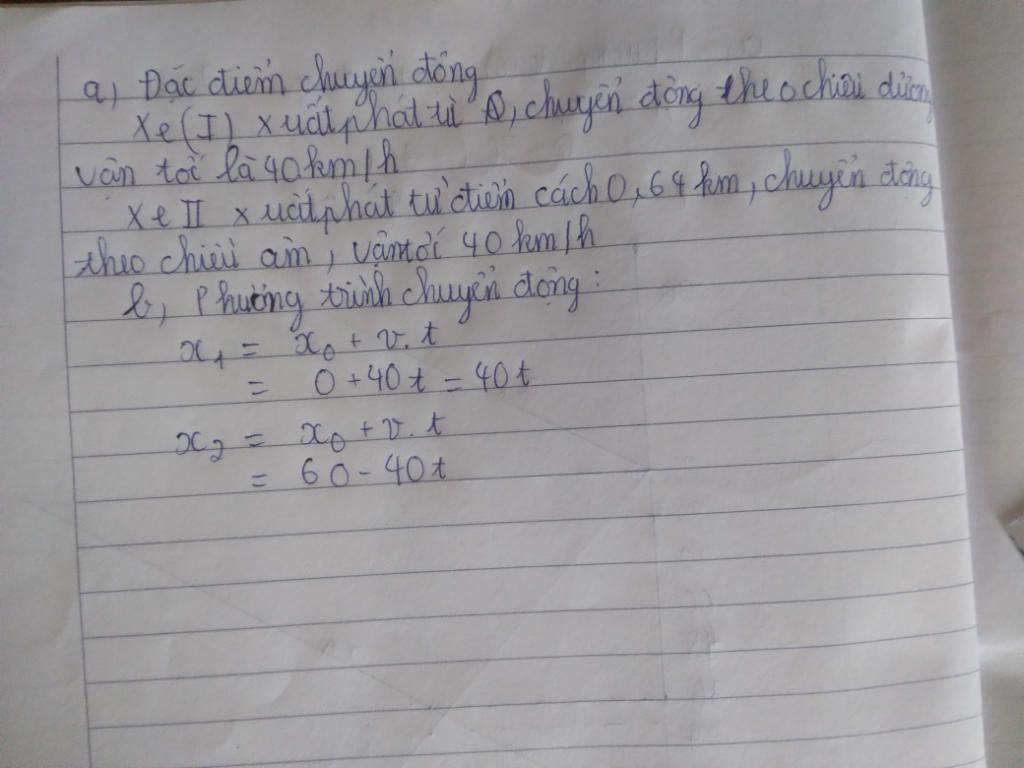 a, Đặc điểm chuyển động
Xe (I) xuất phát từ O, chuyển động theo chiều dương
vận tốc là 40 km/h
Xe II xuất phát từ điểm cách O, 64 km, chuyển động
theo chiều âm, vận tốc 40 km/h
b, Phương trình chuyển động:
x₁ = x₀ + v.t
= 0 + 40t = 40t
x₂ = x₀ + v.t
= 60 - 40t